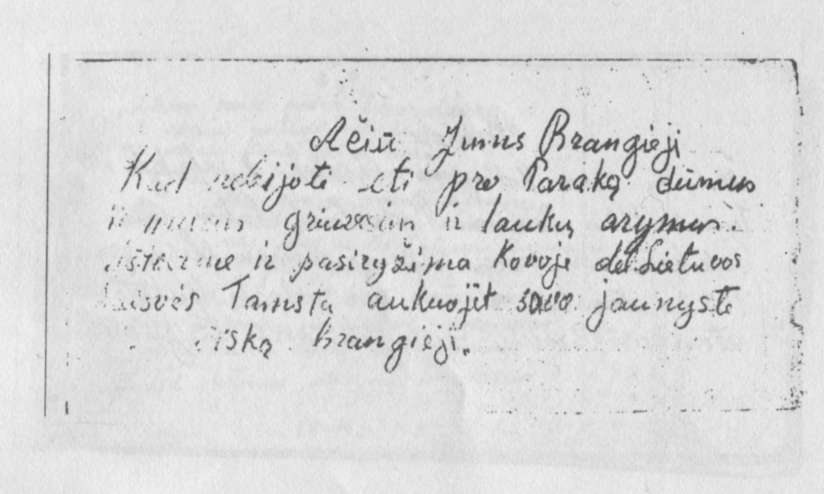 Ačiū Jums Brangieji
Kad nebijoti eti pro Paraką dūmus
ir laukų arymus.
ištverme ir pasiryžima Kovoje dėl Lietuvos
Laisvės Tamsta aukuojit savo jaunyste
viską brangieji.